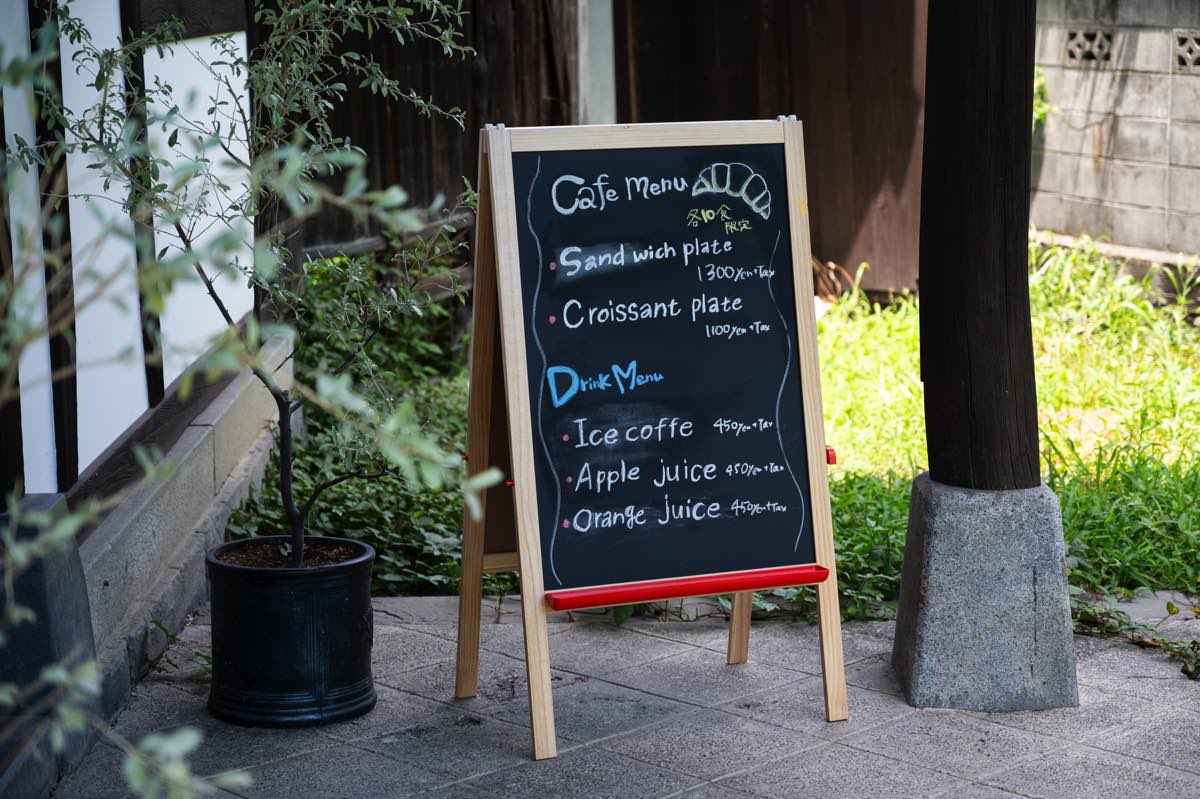 Cafe Menu
各10食
限定
Sandwich plate
1300yen+Tax
Croissant plate
1100yen+Tax
Drink Menu
Ice coffe 450yen+Tax
Apple juice 450yen+Tax
Orange juice 450yen+Tax